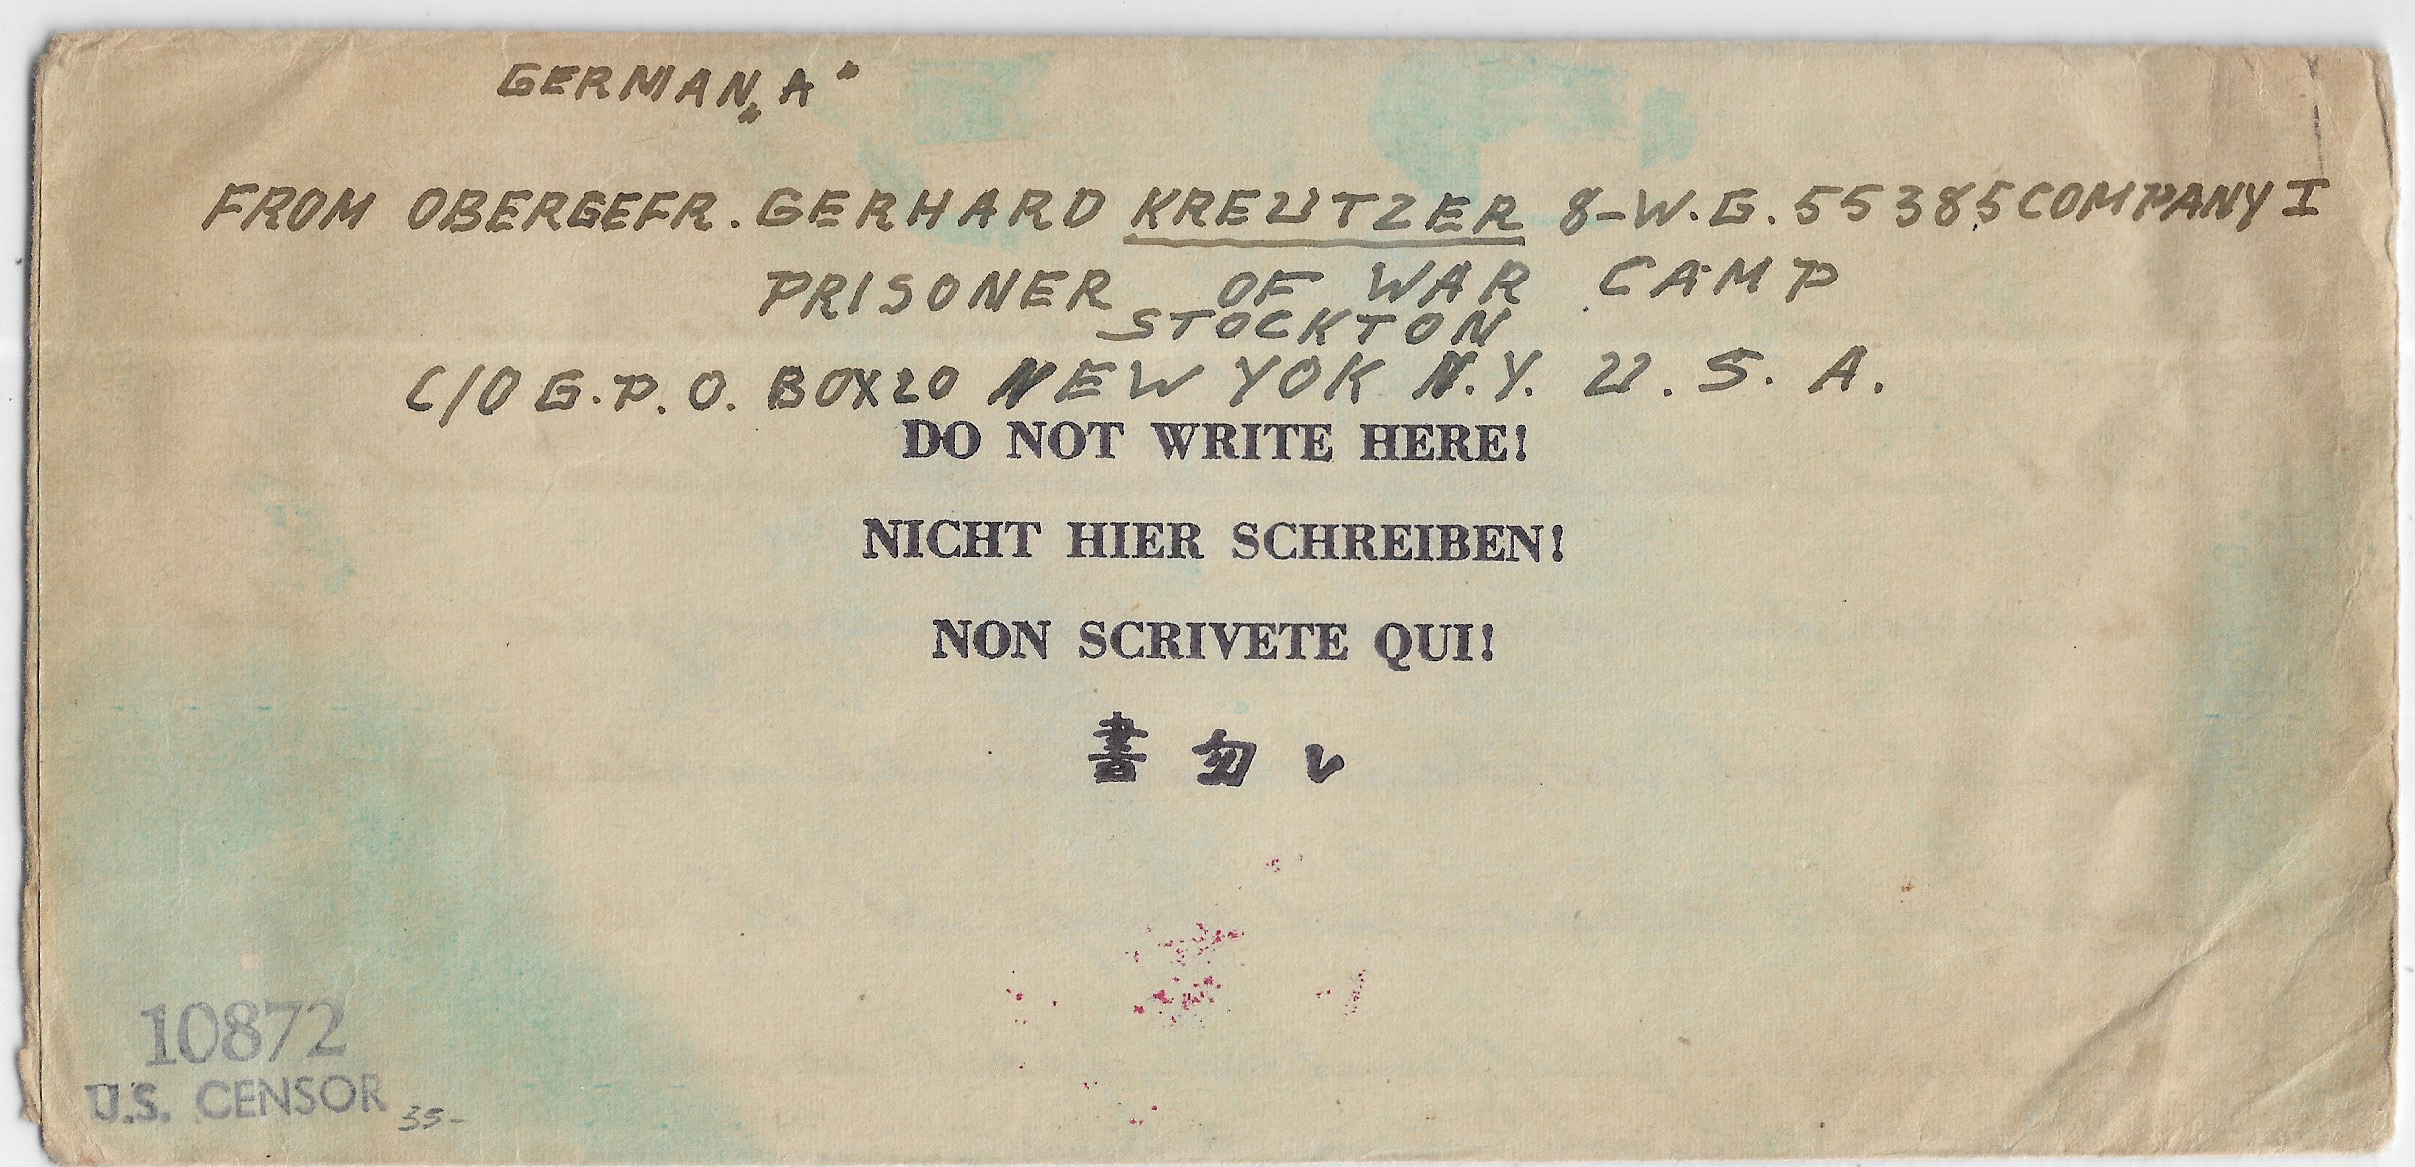 GERMAN „A"
FROM OBERGEFR. GERHARD KREUTZER 8-W.G. 55385 COMPANY I
PRISONER OF WAR CAMP
STOCKTON
C/O G.P.O. BOX 20 NEW YOK N.Y. U.S.A.
DO NOT WRITE HERE!
NICHT HIER SCHREIBEN!
NON SCRIVETE QUI!
書勿レ
10872
U.S. CENSOR
35-